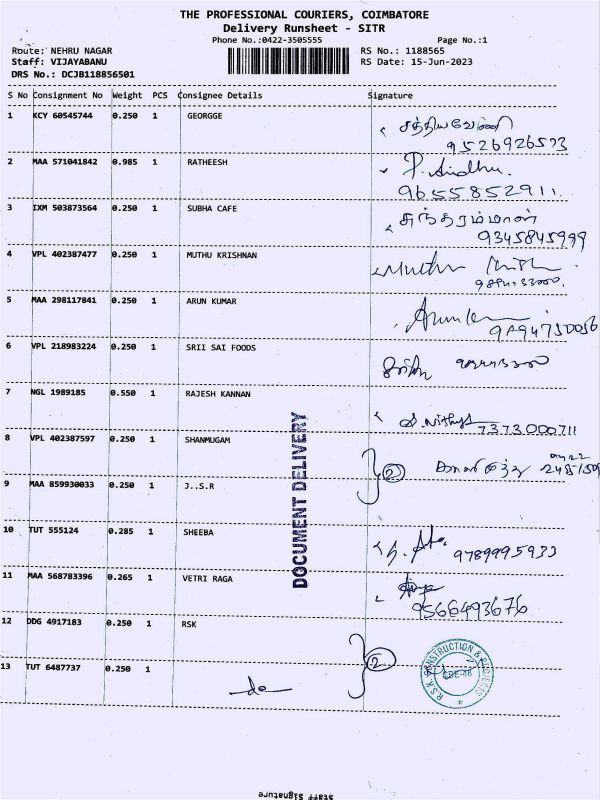 THE PROFESSIONAL COURIERS, COIMBATORE
Delivery Runsheet - SITR
Phone No.:0422-3505555 Page No.:1
Route: NEHRU NAGAR RS No.: 1188565
Staff: VIJAYABANU RS Date: 15-Jun-2023
DRS No.: DCJB118856501
S No Consignment No Weight PCS Consignee Details Signature
1 KCY 60545744 0.250 1 GEORGGE
2 MAA 571041842 0.985 1 RATHEESH P. Sindhu.
9655852911.
3 IXM 503873564 0.250 1 SUBHA CAFE
9345845999
4 VPL 402387477 0.250 1 MUTHU KRISHNAN Muthu
5 MAA 298117841 0.250 1 ARUN KUMAR
6 VPL 218983224 0.250 1 SRII SAI FOODS
7 NGL 1989185 0.550 1 RAJESH KANNAN
7373000711
8 VPL 402387597 0.250 1 SHANMUGAM 2
9 MAA 859930033 0.250 1 J..S.R
10 TUT 555124 0.285 1 SHEEBA 9789995933
11 MAA 568783396 0.265 1 VETRI RAGA
9566493676
12 DDG 4917183 0.250 1 RSK 2
13 TUT 6487737 0.250 1 do
DOCUMENT DELIVERY
R.S.K CONSTRUCTION & PROJECTS
CBE-46
Staff Signature